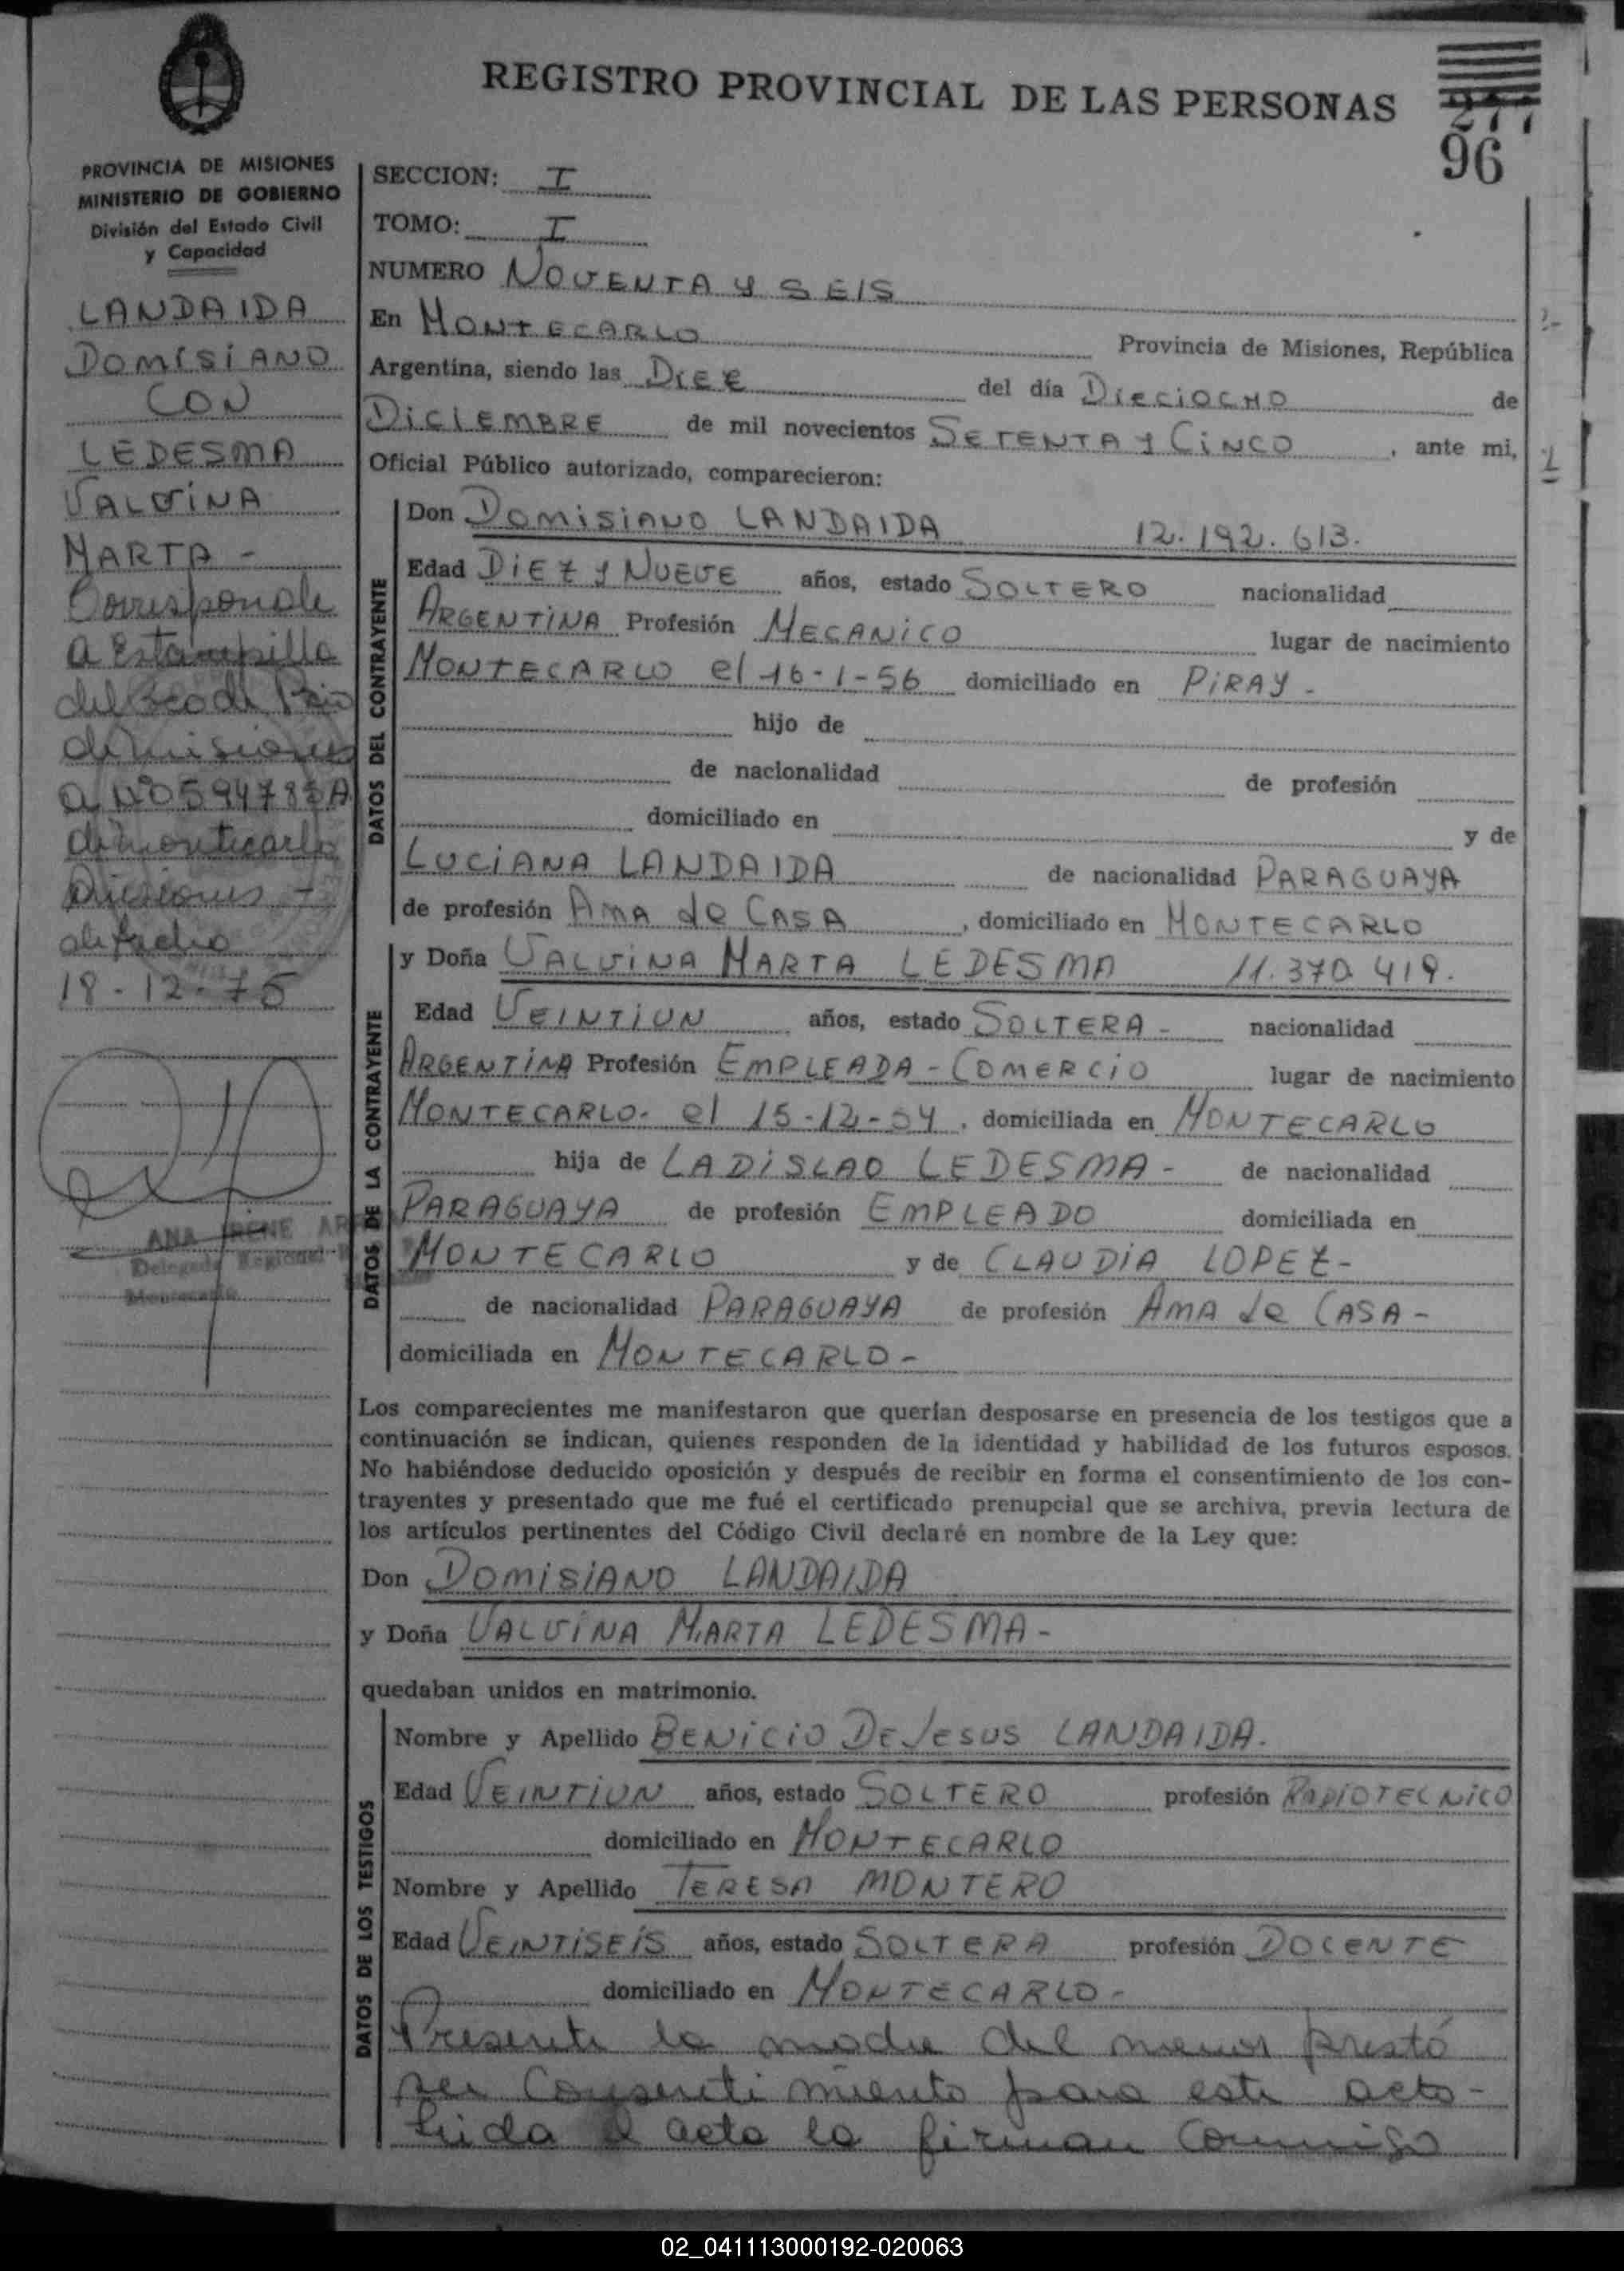 REGISTRO PROVINCIAL DE LAS PERSONAS
277
96
PROVINCIA DE MISIONES
MINISTERIO DE GOBIERNO
División del Estado Civil
y Capacidad
LANDAIDA
DOMISIANO
CON
LEDESMA
VALVINA
MARTA -
Corresponde
a Estampilla
del Bco de
de misiones
a Nº
de montecarlo
Misiones -
de fecha
18-12-75
ANA IRENE
Delegada Regional
Montecarlo
SECCION: I
TOMO: I
NUMERO NOVENTA Y SEIS
En MONTECARLO Provincia de Misiones, República
Argentina, siendo las DIEZ del día DIECIOCHO de
DICIEMBRE de mil novecientos SETENTA Y CINCO, ante mi,
Oficial Público autorizado, comparecieron:
DATOS DEL CONTRAYENTE
Don DOMISIANO LANDAIDA 12.192.613.
Edad DIEZ Y NUEVE años, estado SOLTERO nacionalidad
ARGENTINA Profesión MECANICO lugar de nacimiento
MONTECARLO el 16-1-56 domiciliado en PIRAY -
hijo de
de nacionalidad de profesión
domiciliado en y de
LUCIANA LANDAIDA de nacionalidad PARAGUAYA
de profesión AMA de CASA, domiciliado en MONTECARLO
DATOS DE LA CONTRAYENTE
y Doña VALVINA MARTA LEDESMA 11.370.419.
Edad VEINTIUN años, estado SOLTERA - nacionalidad
ARGENTINA Profesión EMPLEADA - COMERCIO lugar de nacimiento
MONTECARLO - el 15-12-54, domiciliada en MONTECARLO
hija de LADISLAO LEDESMA - de nacionalidad
PARAGUAYA de profesión EMPLEADO domiciliada en
MONTECARLO y de CLAUDIA LOPEZ -
de nacionalidad PARAGUAYA de profesión AMA de CASA -
domiciliada en MONTECARLO -
Los comparecientes me manifestaron que querían desposarse en presencia de los testigos que a
continuación se indican, quienes responden de la identidad y habilidad de los futuros esposos.
No habiéndose deducido oposición y después de recibir en forma el consentimiento de los con-
trayentes y presentado que me fué el certificado prenupcial que se archiva, previa lectura de
los artículos pertinentes del Código Civil declaré en nombre de la Ley que:
Don DOMISIANO LANDAIDA
y Doña VALVINA MARTA LEDESMA -
quedaban unidos en matrimonio.
DATOS DE LOS TESTIGOS
Nombre y Apellido BENICIO DE JESUS LANDAIDA.
Edad VEINTIUN años, estado SOLTERO profesión RADIOTECNICO
domiciliado en MONTECARLO
Nombre y Apellido TERESA MONTERO
Edad VEINTISEIS años, estado SOLTERA profesión DOCENTE
domiciliado en MONTECARLO -
Presente la madre del menor prestó
su Consentimiento para este acto -
Leida el acta la firman conmigo
02_041113000192-020063